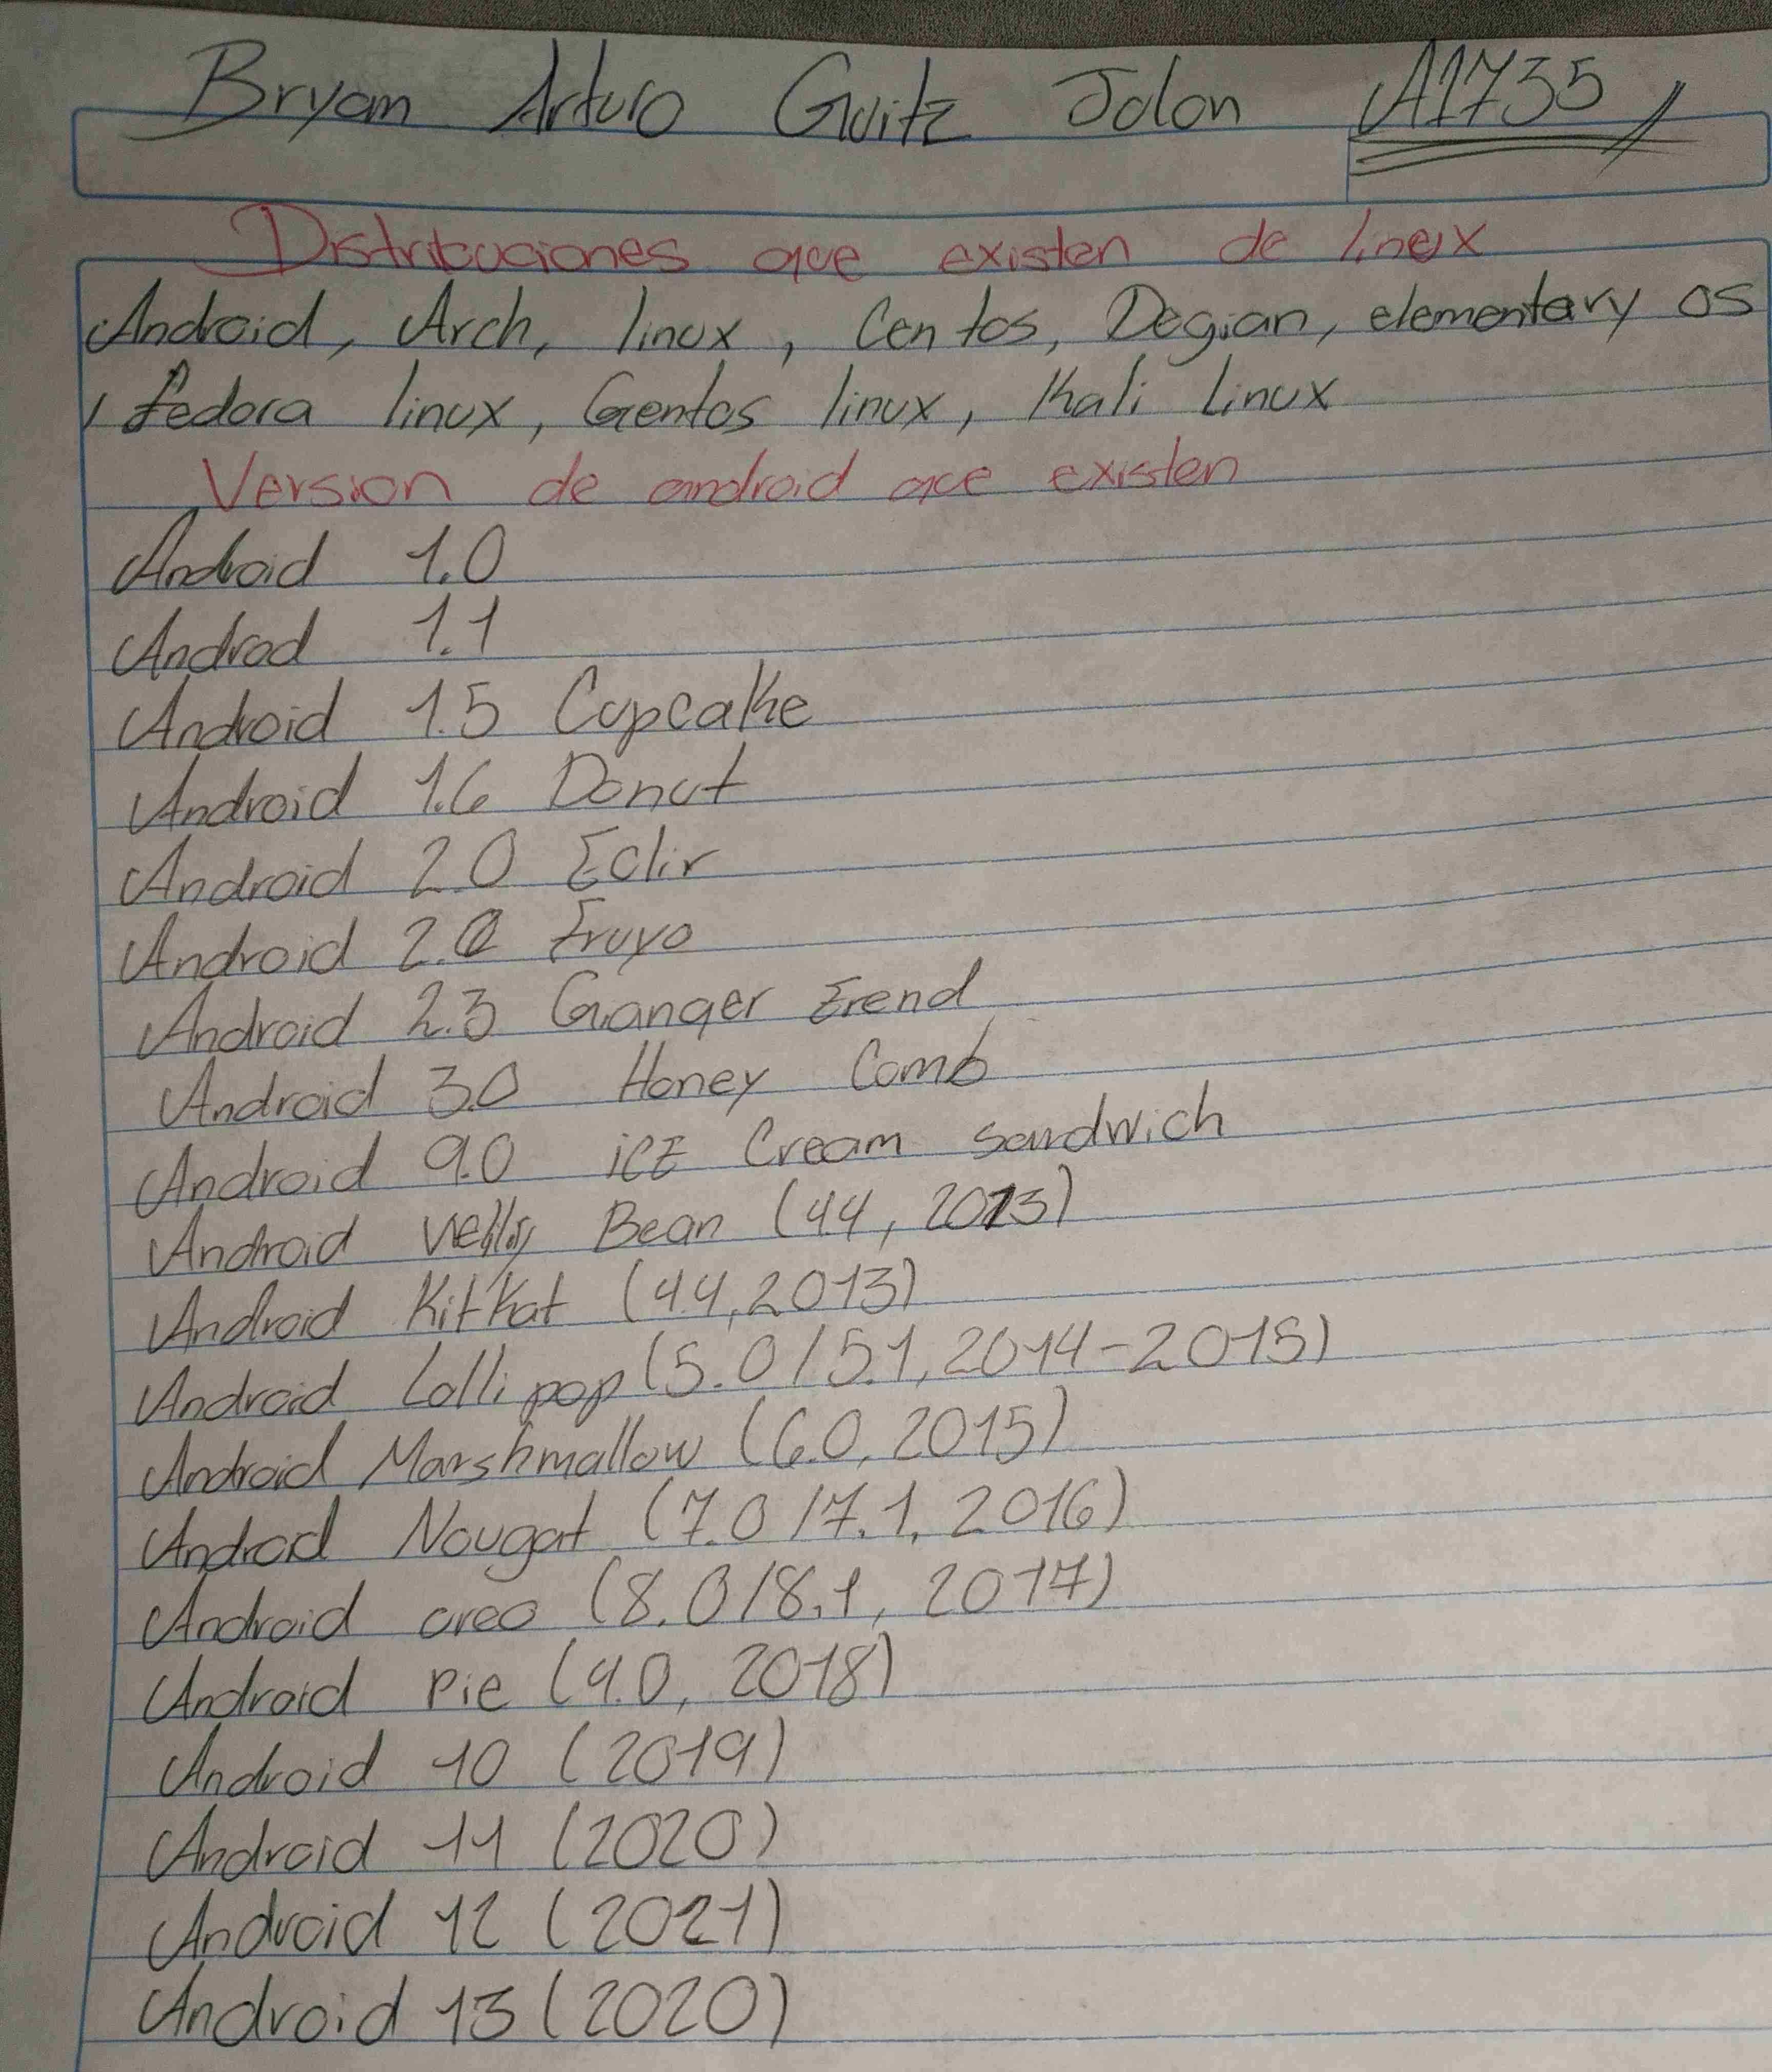 Bryam Arturo Guitz Jolon A1735
Distribuciones que existen de linux
Android, Arch, linux, Centos, Degian, elementary os
, fedora linux, Gentos linux, Kali Linux
Version de android que existen
Android 1.0
Androd 1.1
Android 1.5 Cupcake
Android 1.6 Donut
Android 2.0 Eclir
Android 2.2 Fruyo
Android 2.3 Gianger Erend
Android 3.0 Honey Comb
Android 9.0 icE Cream sandwich
Android Bean (4.4, 2013)
Android Kitkat (4.4, 2013)
Android Lollipop (5.0/5.1, 2014-2015)
Android Marshmallow (6.0, 2015)
Androd Nougat (7.0/7.1, 2016)
Android oreo (8.0/8.1, 2017)
Android Pie (9.0, 2018)
Android 10 (2019)
Android 11 (2020)
Android 12 (2021)
Android 13 (2020)